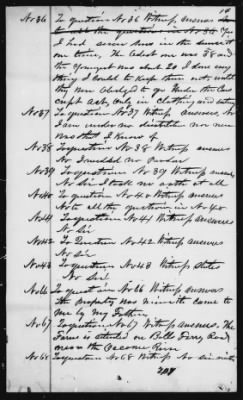 14
No 36 To question No 36 Witness answers
to all the questions in No 35 Yes
I had seven sons in the service
one time, the oldest one was 38 and
the youngest was about 20 I done any
thing I could to keep them out, until
they were obliged to go under the Cons
cript Act, only in clothing and eating
No 37 To question No 37 Witness answers, No
I am under no disabilities nor never
was that I know of
No 38 To question No 38 Witness answers
No I needed no pardon
No 39 To question No 39 Witness answers
No Sir I took no oath at all
No 40 To question No 40 Witness answers
No to all the questions in No 40
No 41 To question No 41 Witness answers
No Sir
No 42 To Question No 42 Witness answers
No sir
No 43 To question No 43 Witness states
No Sir
No 66 To question No 66 Witness answers
the property was mine it came to
me by my Father
No 67 To question No 67 Witness answers. The
Farm is situated on Bells Ferry Road
near the Oconee River
No 68 To question No 68 Witness No sir